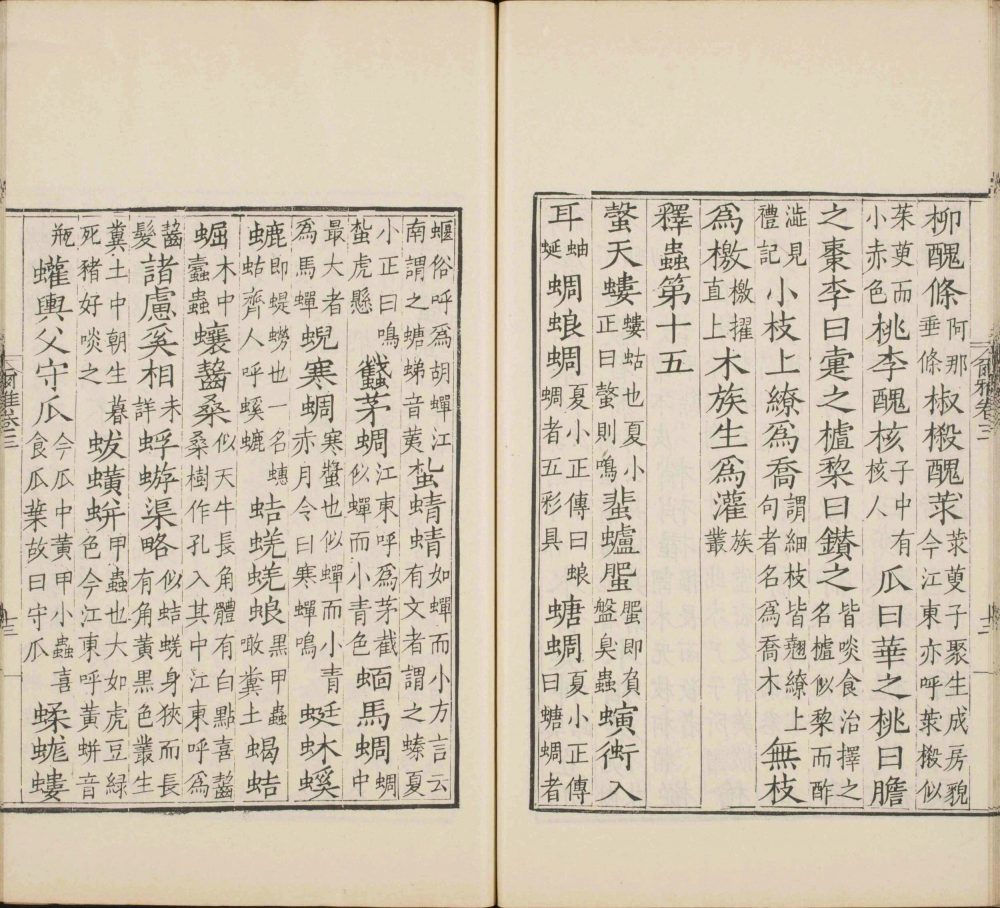 柳醜條阿那垂條椒樧醜莍莍萸子聚生成房貌今江東亦呼莍樧似
茱萸而小赤色桃李醜核子中有核人瓜曰華之桃曰膽
之棗李曰疐之樝棃曰鑽之皆啖食治擇之名樝似棃而酢
澁見禮記小枝上繚為喬謂細枝皆翹繚上句者名為喬木無枝
為檄檄擢直上木族生為灌族叢
釋蟲第十五
螜天螻螻蛄也夏小正曰螜則鳴蜚蠦蜰蜰即負盤臭蟲螾衝入
耳蚰蜒蜩蜋蜩夏小正傳曰蜋蜩者五彩具螗蜩夏小正傳曰螗蜩者
蝘俗呼為胡蟬江南謂之螗蛦音荑蚻蜻蜻如蟬而小方言云有文者謂之螓夏
小正曰鳴蚻虎懸蠽茅蜩江東呼為茅截似蟬而小青色蝒馬蜩蜩中
最大者為馬蟬蜺寒蜩寒螿也似蟬而小青赤月令曰寒蟬鳴蜓蚞螇
螰即蝭蟧也一名蟪蛄齊人呼螇螰蛣蜣蜣蜋黑甲蟲噉糞土蝎蛣
𧌑木中蠹蟲蠰齧桑似天牛長角體有白點喜齧桑樹作孔入其中江東呼為
齧髮諸慮奚相未詳蜉蝣渠略似蛣蜣身狹而長有角黃黑色叢生
糞土中朝生暮死豬好啖之蛂蟥蛢甲蟲也大如虎豆綠色今江東呼黃蛢音
瓶蠸輿父守瓜今瓜中黃甲小蟲喜食瓜葉故曰守瓜蝚蛖螻